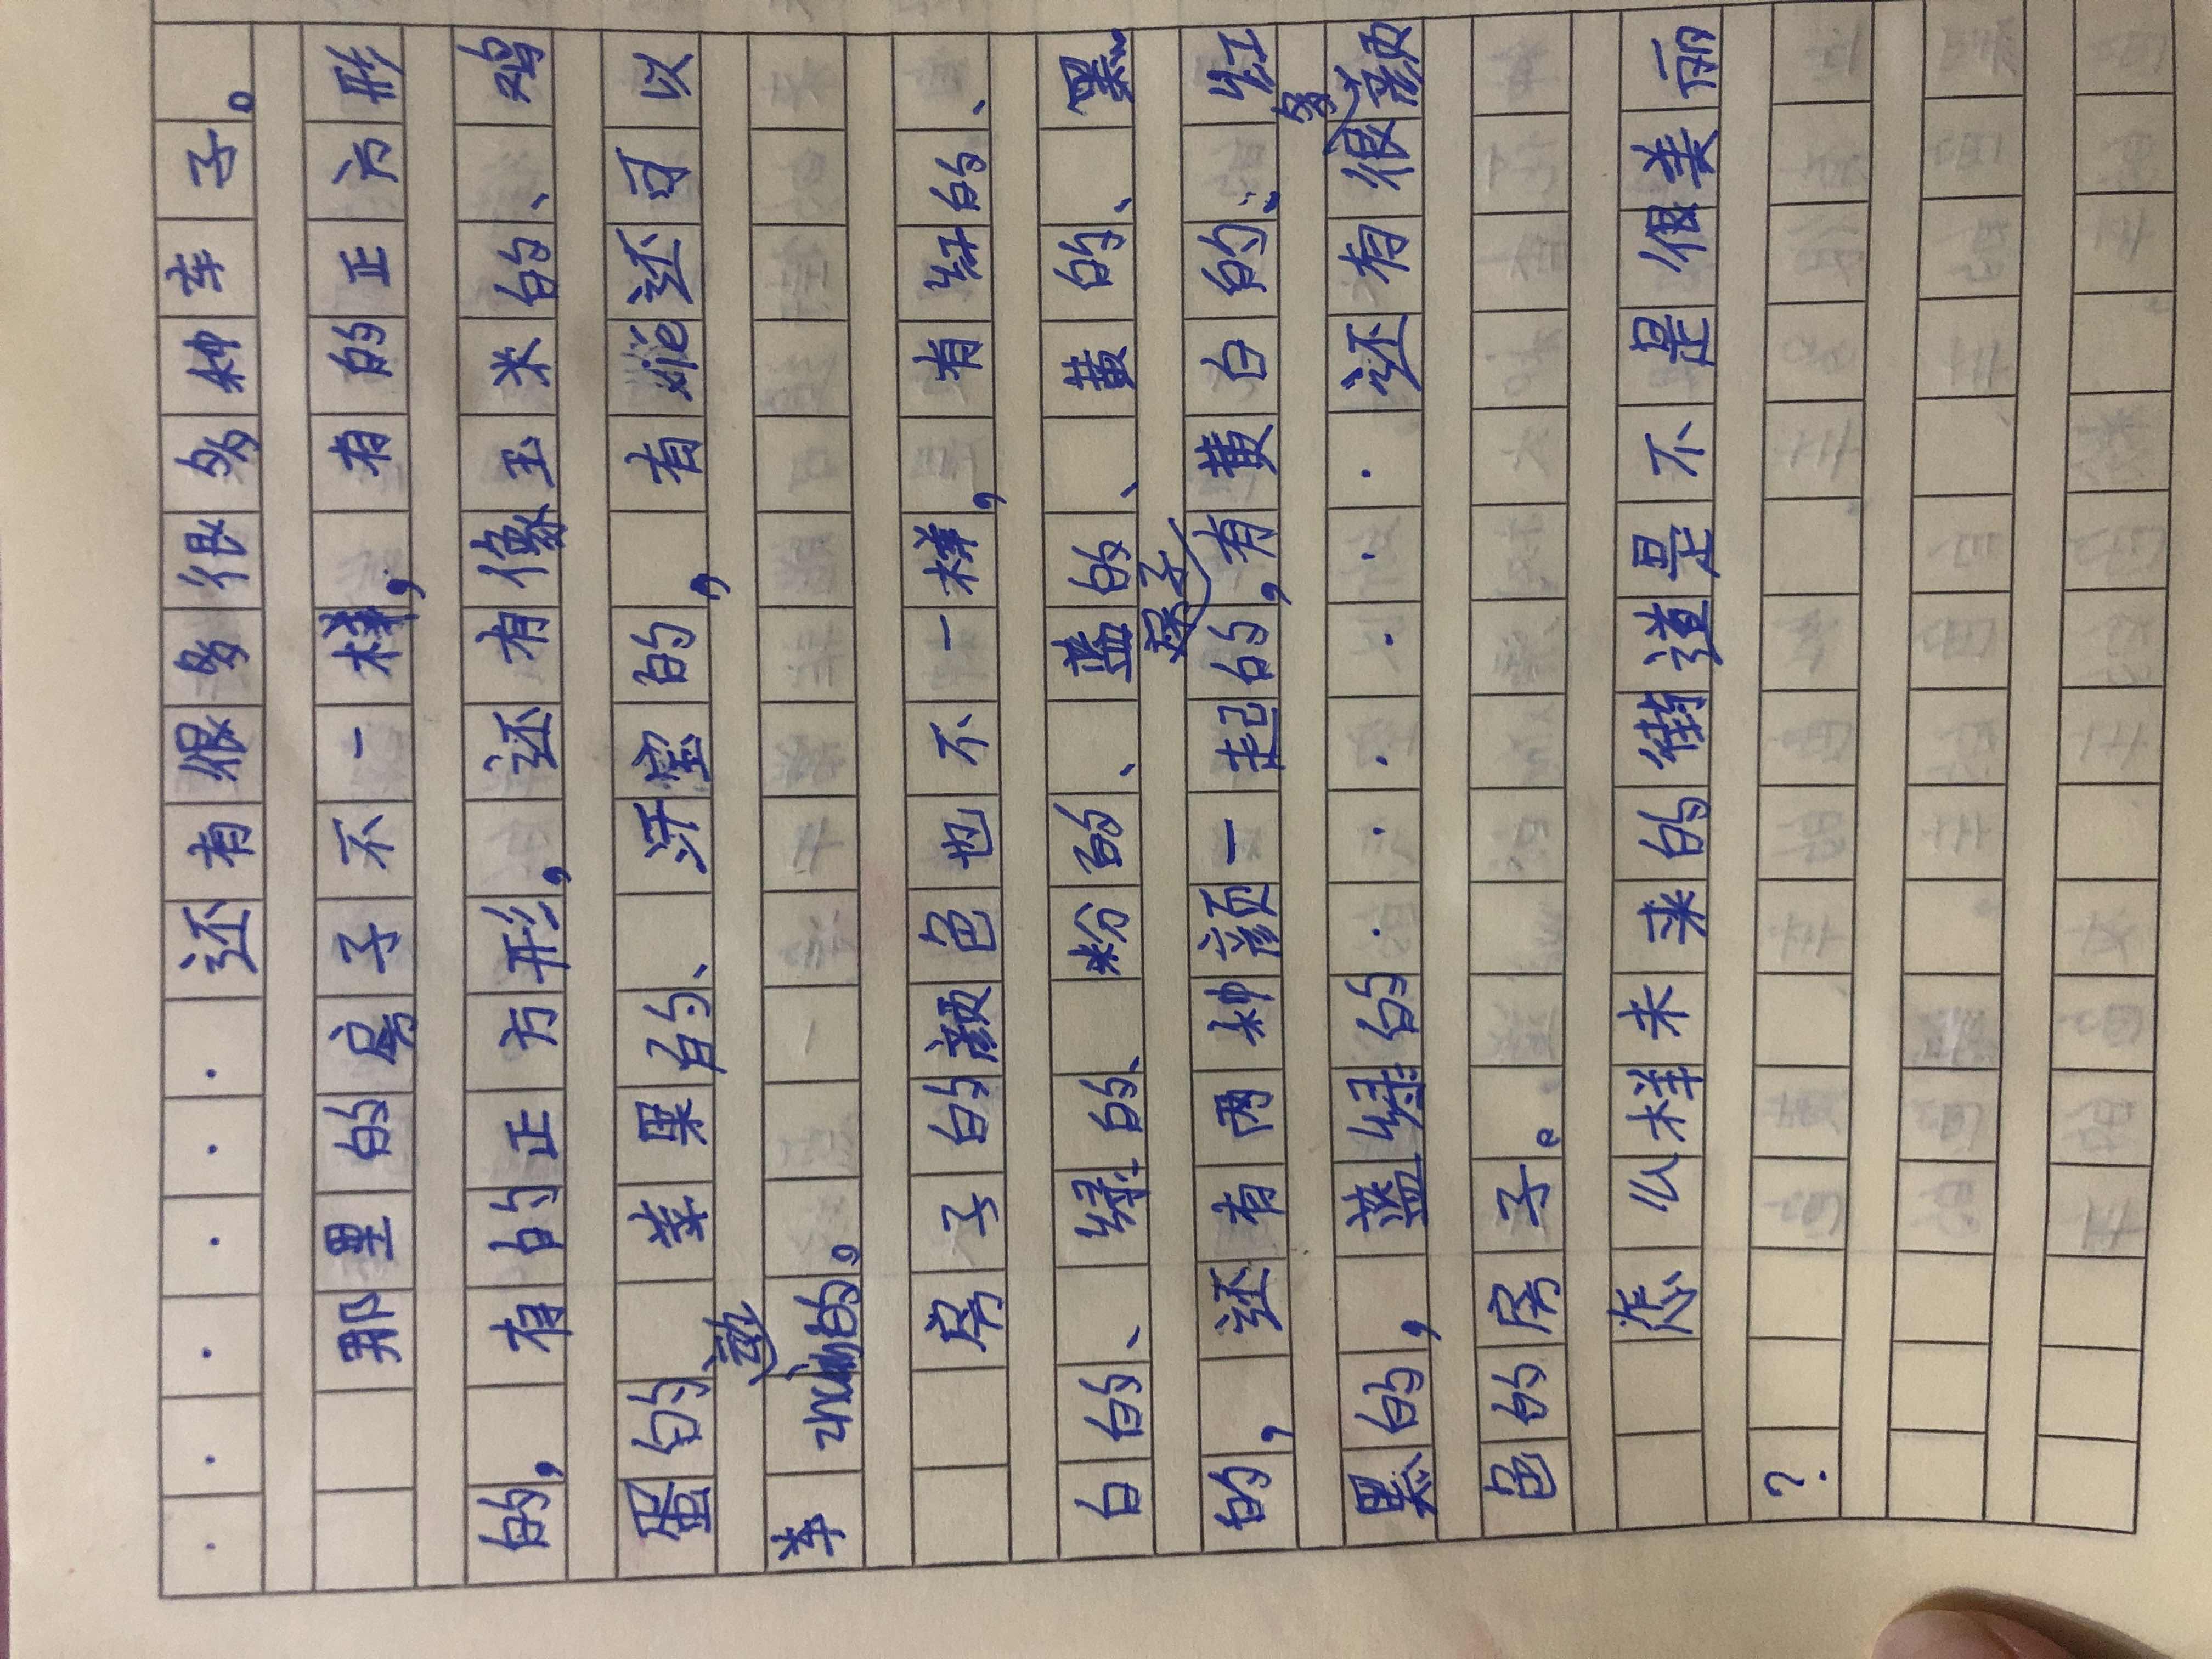 ······还有很多很多种车子。
那里的房子不一样，有的正方形
的，有的正方形，还有像玉米的、鸡
蛋的、苹果的、汗堡的，有xiē还可以
动的。
房子的颜色也不一样，有红的、
白的、绿的、粉的、蓝的、黄的、黑
的，还有两种颜一起的房子，有黄白的、红
黑的，蓝绿的······还有很多颜
色的房子。
怎么样未来的街道是不是很美丽
？